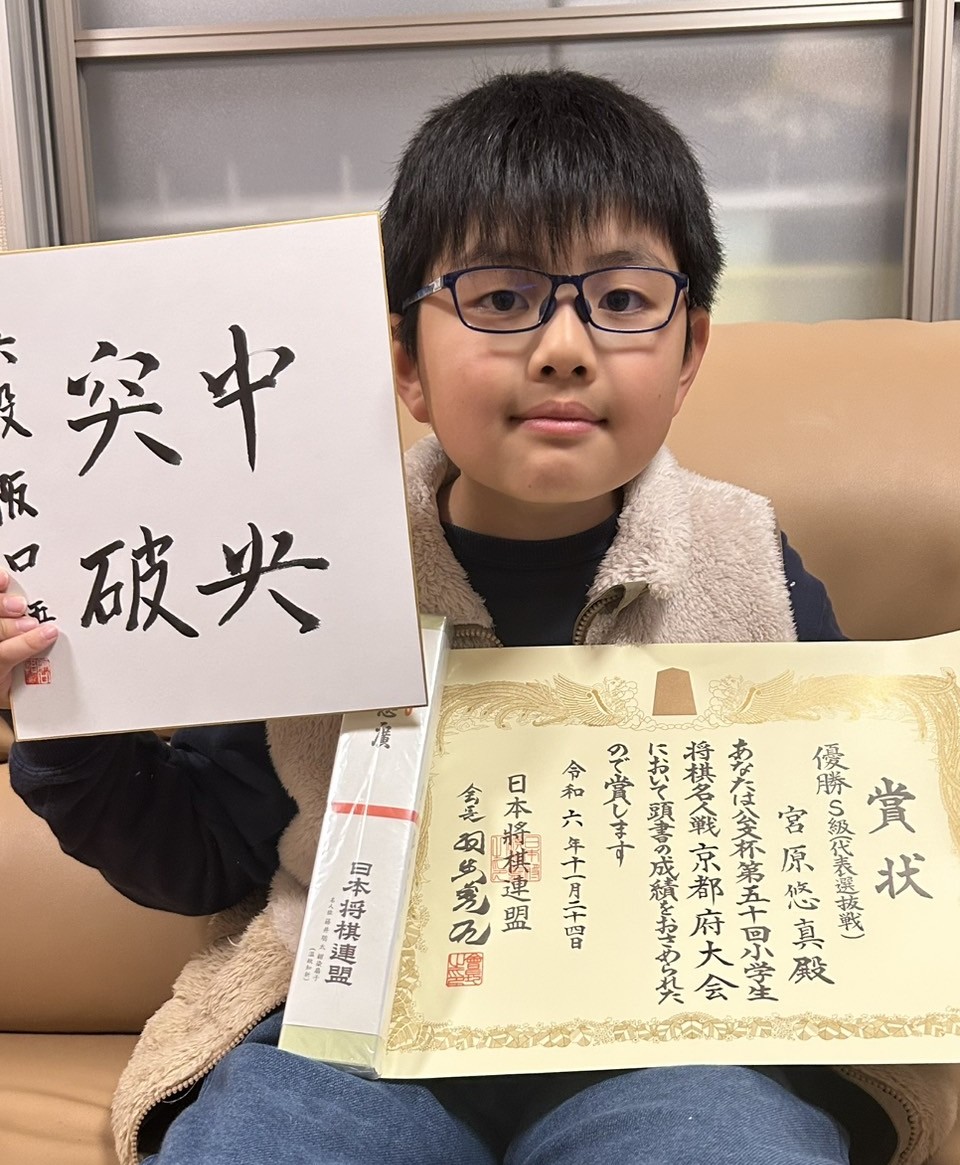 中央
突破
六段 阪口 五
賞状
優勝S級(代表選抜戦)
宮原悠真殿
あなたは公文杯第五十回小学生
将棋名人戦京都府大会
において頭書の成績をおさめられた
ので賞します
令和六年十一月二十四日
日本将棋連盟
会長 羽生善治
日本将棋連盟
名人位 藤井聡太